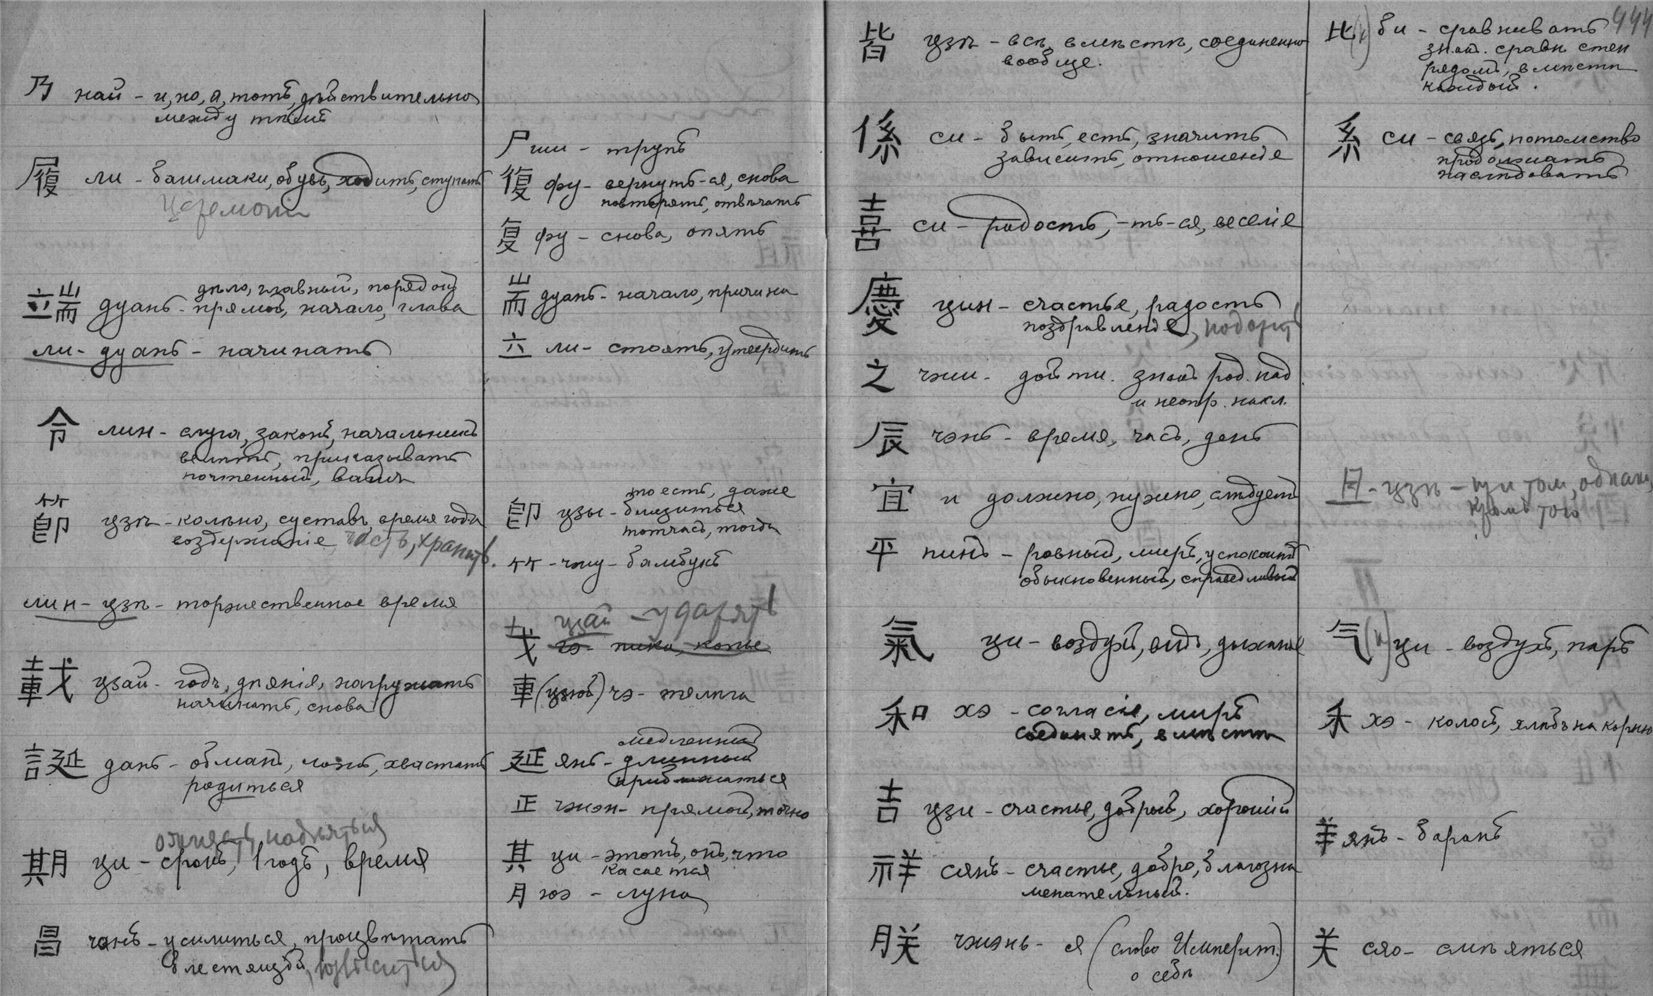 乃 най - и, но, а, тотъ, дѣйствительно
между тѣмъ
履 ли - башмаки, обувь, ходить, ступать
церемонии
дѣло, главный, порядокъ
端 дуань - прямой, начало, глава
ли - дуань - начинать
令 лин - слуга, законъ, начальникъ
велѣть, приказывать
почтенный, вашъ
節 цзѣ - колѣно, суставъ, время года
воздержаніе часть, хранить.
лин - цзѣ - торжественное время
載 цзай - годъ, дѣянія, нагружать
начинать, снова
誕 дань - обманъ, ложь, хвастать
родиться
ожидать, надѣяться
期 ци - срокъ, 1 годъ, время
昌 чанъ - усилиться, процвѣтать
блестящій,
尸 ши - трупъ
復 фу - вернуть-ся, снова
повторять, отвѣчать
复 фу - снова, опять
耑 дуань - начало, причина
立 ли - стоять, утвердить
то есть, даже
卽 цзы - близиться
тотчасъ, тогда
竹 - чжу - бамбукъ
цзай - ударять
戈 гэ - пика, копье
車 (цзюй) чэ - телѣга
медленный
延 янь - длинный
приближаться
正 чжэн - прямой, точно
其 ци - этотъ, онъ, что
касается
月 юэ - луна
皆 цзѣ - всѣ, вмѣстѣ, соединенно
вообще.
係 си - быть, есть, значить
зависить, отношеніе
喜 си - радость, -ть-ся, веселіе
慶 цин - счастье, радость
поздравленіе,
之 чжи - дойти. знакъ род. пад
и неопр. накл.
辰 чэнь - время, часъ, день
宜 и должно, нужно, слѣдуетъ
平 пинъ - ровный, миръ, успокоить
обыкновенный, справедливый
氣 ци - воздухъ, видъ, дыханіе
和 хэ - согласіе, миръ
соединять, вмѣстѣ
吉 цзи - счастье, добрый, хорошій
祥 сянъ - счастье, добро, благозна
менательный.
朕 чжэнь - я (слово Императ.)
о себѣ
444
比 (k) би - сравнивать
знак. сравн степ
рядомъ, вмѣстѣ
каждый.
系 си - связь, потомство
продолжать
наслѣдовать
且 - цзѣ - при том, однако,
кромѣ того
气 (k) ци - воздухъ, паръ
禾 хэ - колосъ, хлѣбъ на корню
羊 янъ - баранъ
关 сяо - смѣяться